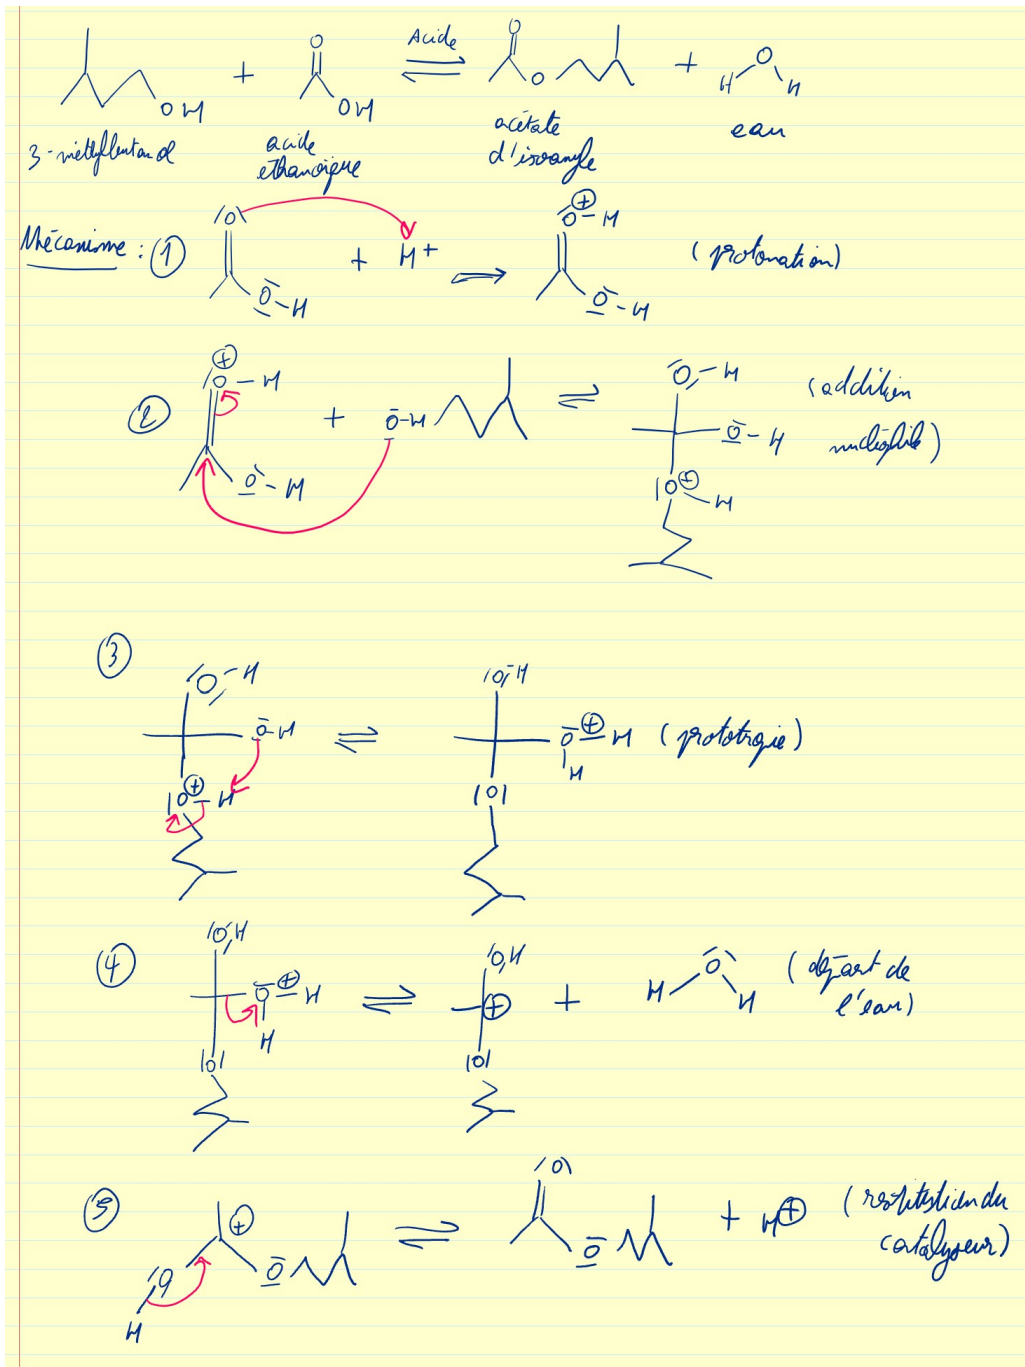 + Acide +
OH O OH O O O H H
3-méthylbutanol acide éthanoïque acétate d'isoamyle eau
Mécanisme : ① O + H+ O ⊕ H (protonation)
O-H O-H
② ⊕ O-H + O-H O-H (addition
O-H O-H nucléophile)
O ⊕ H
③ O-H O-H
O-H O ⊕ H (prototropie)
H
O ⊕ H O
④ O,H O,H O (départ de
O ⊕ H ⊕ + H H l'eau)
H
O O
⑤ O
⊕ + H⊕ (restitution du
O O O catalyseur)
H